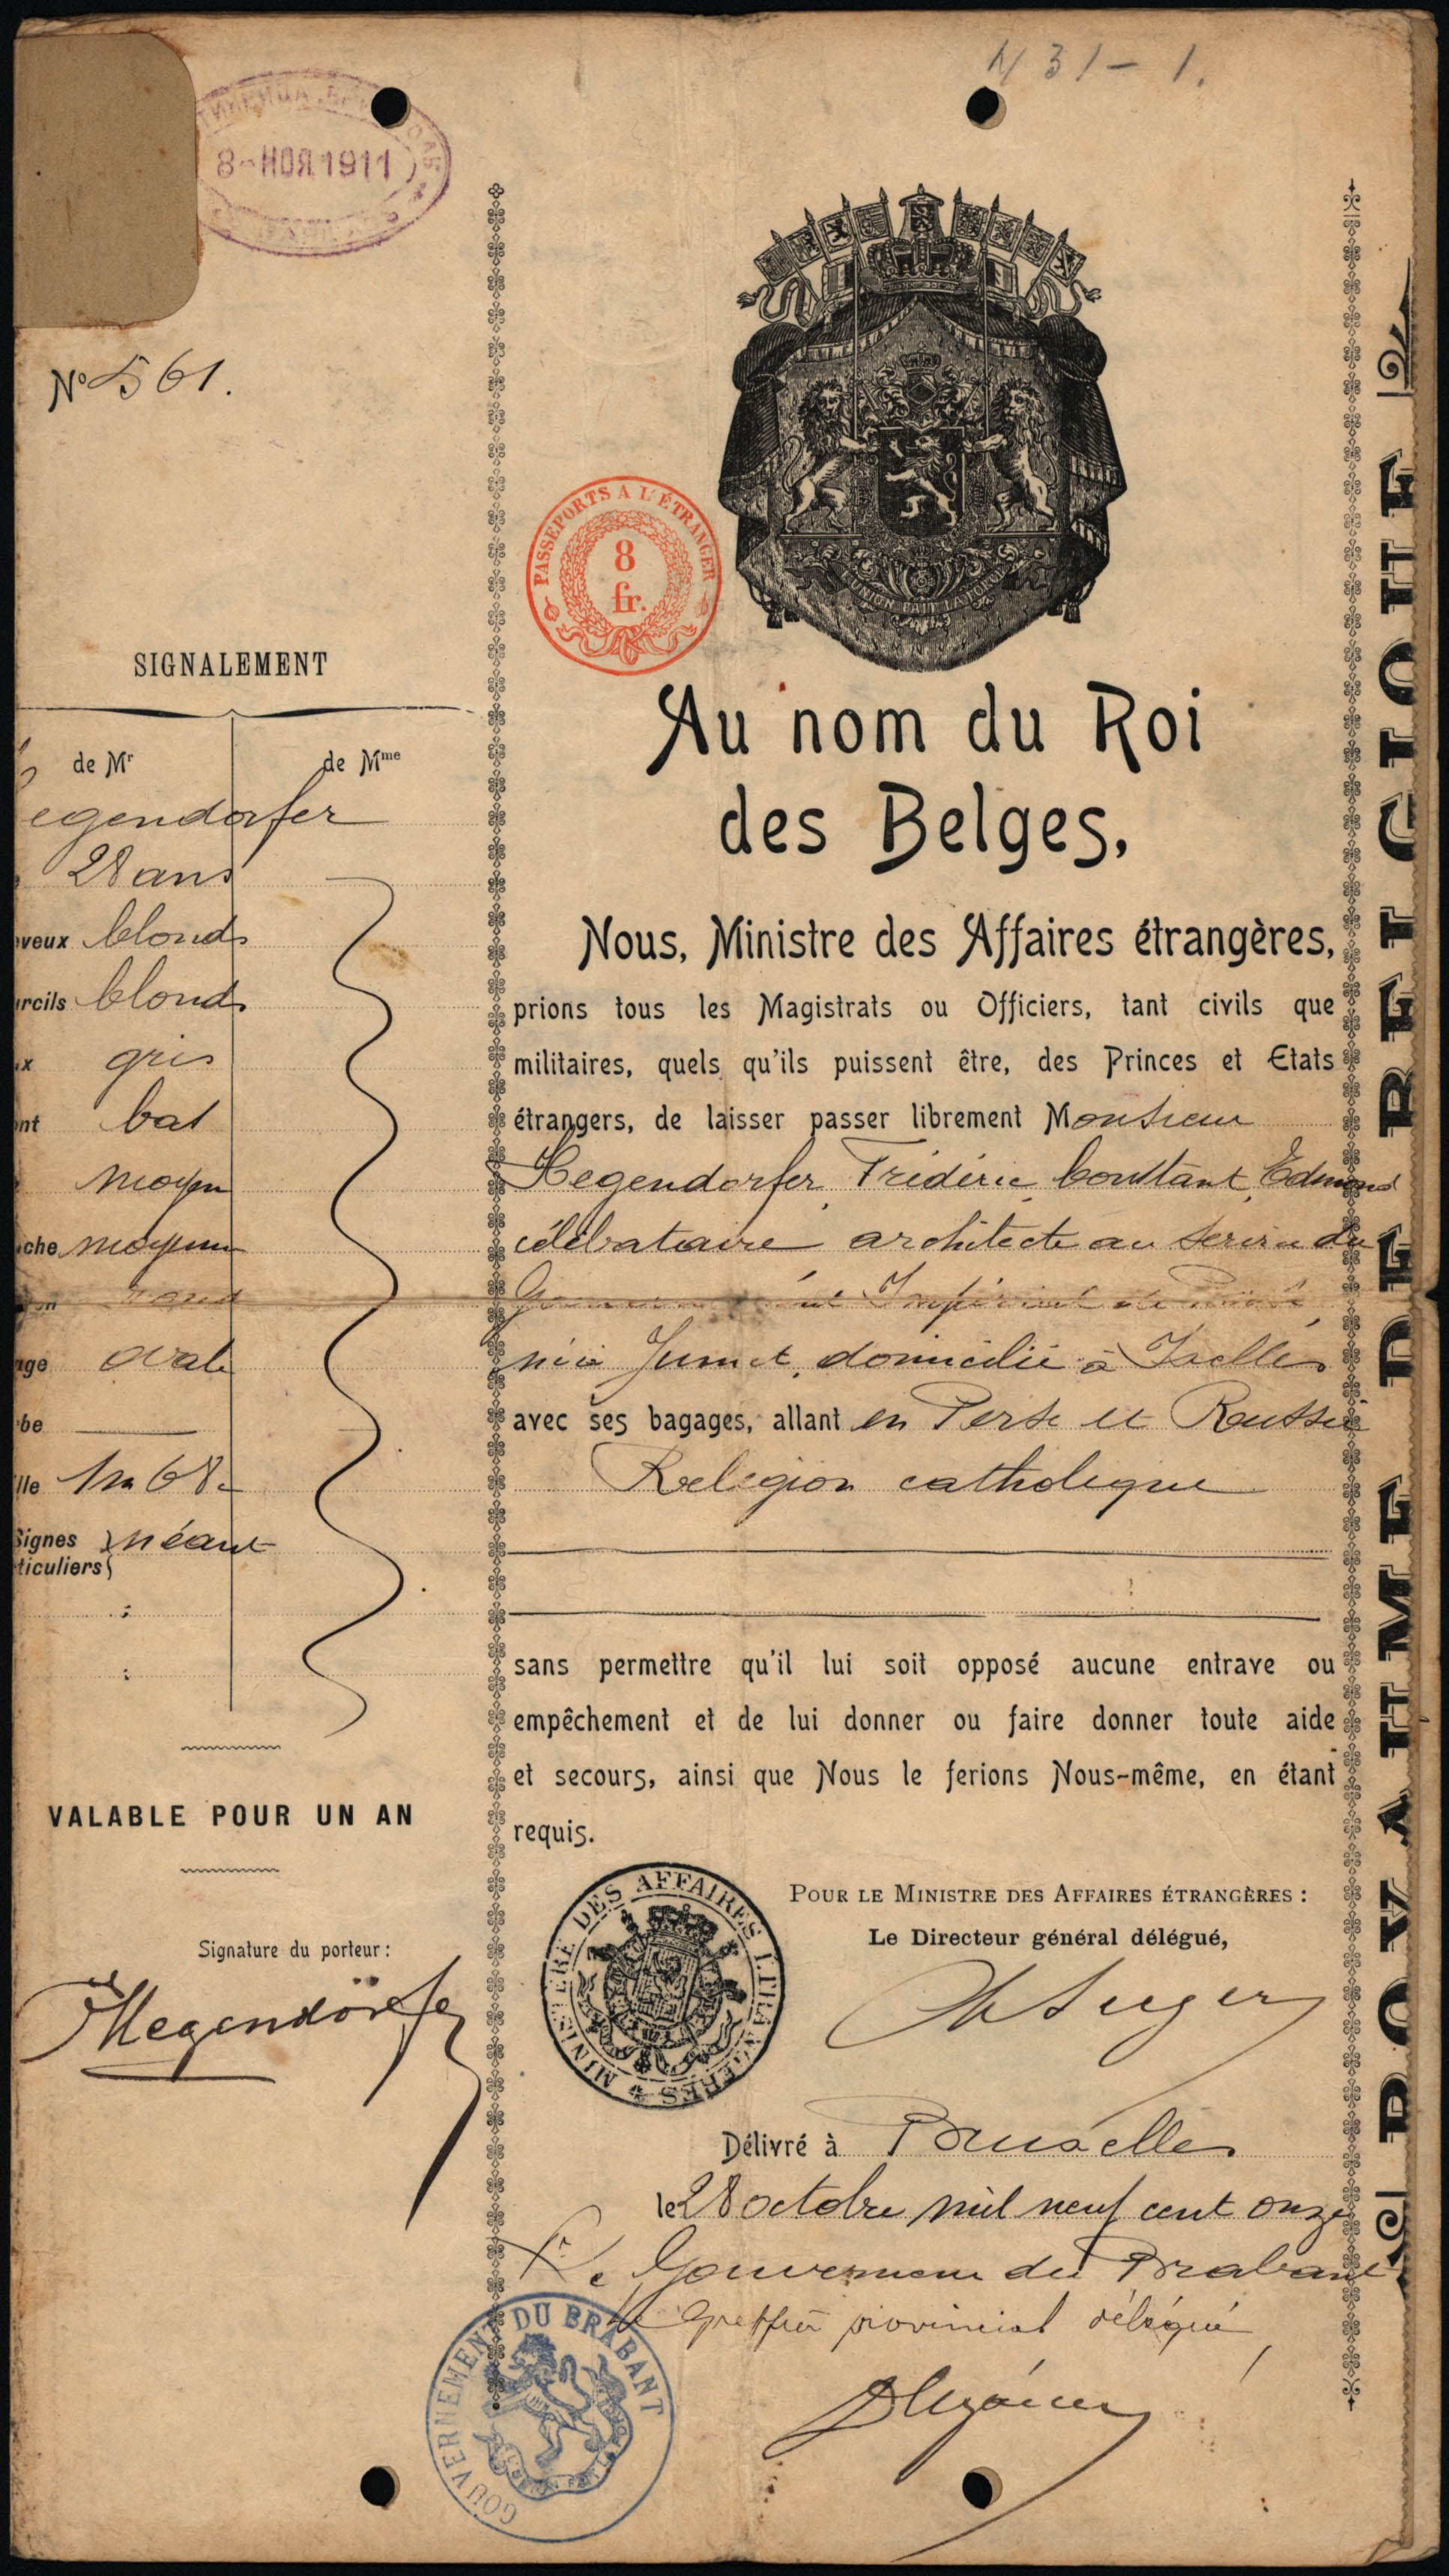 N 31 - 1.
8-НОЯ 1911
Nº 561.
PASSEPORTS A L'ÉTRANGER
8
fr.
L'UNION FAIT LA FORCE
SIGNALEMENT
de Mr de Mme
egendorfer
28 ans
veux blonds
rcils blonds
x gris
nt bas
moyen
che moyenne
on rond
age ovale
be
lle 1m 68c
Signes néant
ticuliers
VALABLE POUR UN AN
Signature du porteur :
Hegendörfer
Au nom du Roi
des Belges,
Nous, Ministre des Affaires étrangères,
prions tous les Magistrats ou Officiers, tant civils que
militaires, quels qu'ils puissent être, des Princes et Etats
étrangers, de laisser passer librement Monsieur
Hegendorfer, Frédéric, Constant, Edmond
célibataire architecte au service du
Impérial de
né à Jumet, domicilié à Ixelles
avec ses bagages, allant en Perse et Russie
Religion catholique
sans permettre qu'il lui soit opposé aucune entrave ou
empêchement et de lui donner ou faire donner toute aide
et secours, ainsi que Nous le ferions Nous-même, en étant
requis.
MINISTERE DES AFFAIRES ETRANGERES
POUR LE MINISTRE DES AFFAIRES ÉTRANGÈRES :
Le Directeur général délégué,
Délivré à Bruxelles
le 28 octobre mil neuf cent onze
Gouverneur du Brabant
Le Greffier provincial délégué
GOUVERNEMENT DU BRABANT
ROYAUME DE BELGIQUE